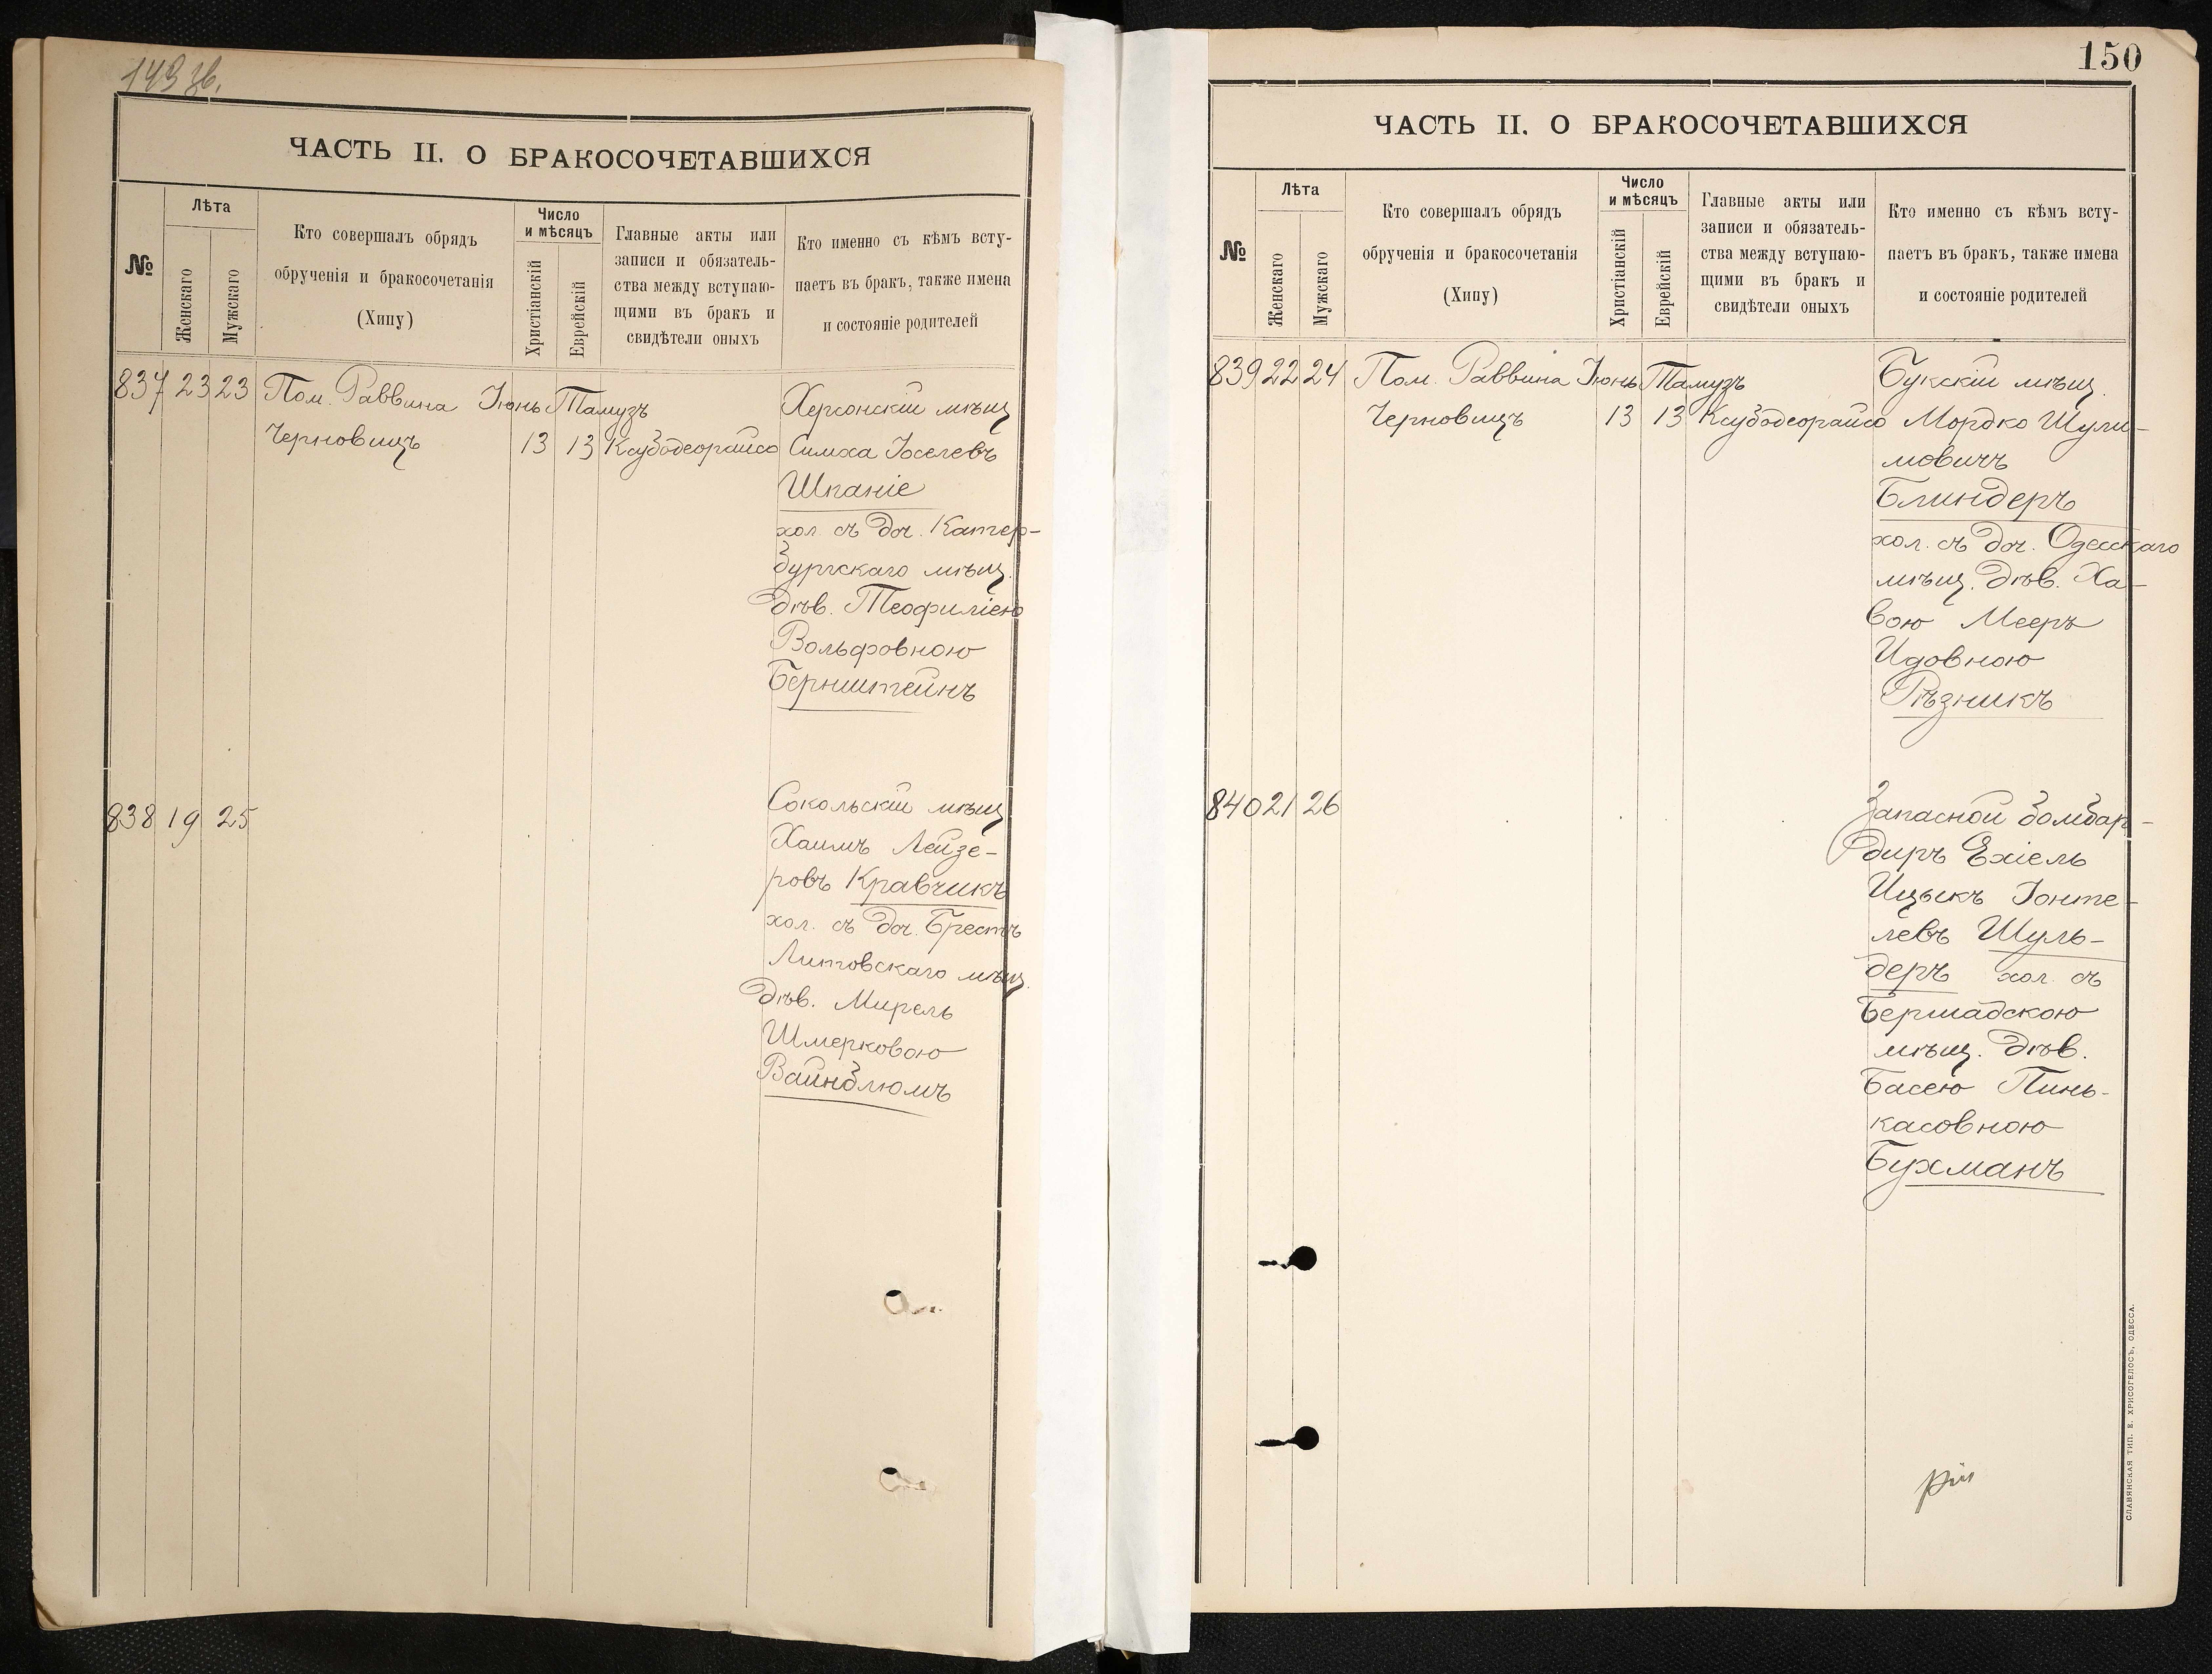 149 зв.
ЧАСТЬ II. О БРАКОСОЧЕТАВШИХСЯ
№
Лѣта
Женскаго
Мужскаго
Кто совершалъ обрядъ
обрученія и бракосочетанія
(Хипу)
Число
и мѣсяцъ
Христіанскій
Еврейскій
Главные акты или
записи и обязатель-
ства между вступаю-
щими въ бракъ и
свидѣтели оныхъ
Кто именно съ кѣмъ всту-
паетъ въ бракъ, также имена
и состояніе родителей
837 23 23 Пом. Раввина Іюнь Тамузъ
Черновицъ 13 13 Ксубодеорайсо
Херсонскій мѣщ
Симха Іоселевъ
Шпаніе
хол. съ доч. Катер-
бургскаго мѣщ.
дѣв. Теофиліею
Вольфовною
Бернштейнъ
838 19 25
Сокольскій мѣщ
Хаимъ Лейзе-
ровъ Кравчикъ
хол. съ доч. Брестъ
Литовскаго мѣщ.
дѣв. Мирель
Шмерковою
Вайнблюмъ
150
ЧАСТЬ II. О БРАКОСОЧЕТАВШИХСЯ
№
Лѣта
Женскаго
Мужскаго
Кто совершалъ обрядъ
обрученія и бракосочетанія
(Хипу)
Число
и мѣсяцъ
Христіанскій
Еврейскій
Главные акты или
записи и обязатель-
ства между вступаю-
щими въ бракъ и
свидѣтели оныхъ
Кто именно съ кѣмъ всту-
паетъ въ бракъ, также имена
и состояніе родителей
839 22 24 Пом. Раввина Іюнь Тамузъ
Черновицъ 13 13 Ксубодеорайсо
Букскій мѣщ.
Мордко Шули-
мовичъ
Блиндеръ
хол. съ доч. Одесскаго
мѣщ. дѣв. Ха-
вою Мееръ
Идовною
Рѣзникъ
840 21 26
Запасной бомбар-
диръ Ехіель
Ицыкъ Іонте-
левъ Шуль-
деръ хол. съ
Бершадскою
мѣщ. дѣв.
Басею Пинь-
касовною
Бухманъ
СЛАВЯНСКАЯ ТИП. Е. ХРИСОГЕЛОСЪ, ОДЕССА.